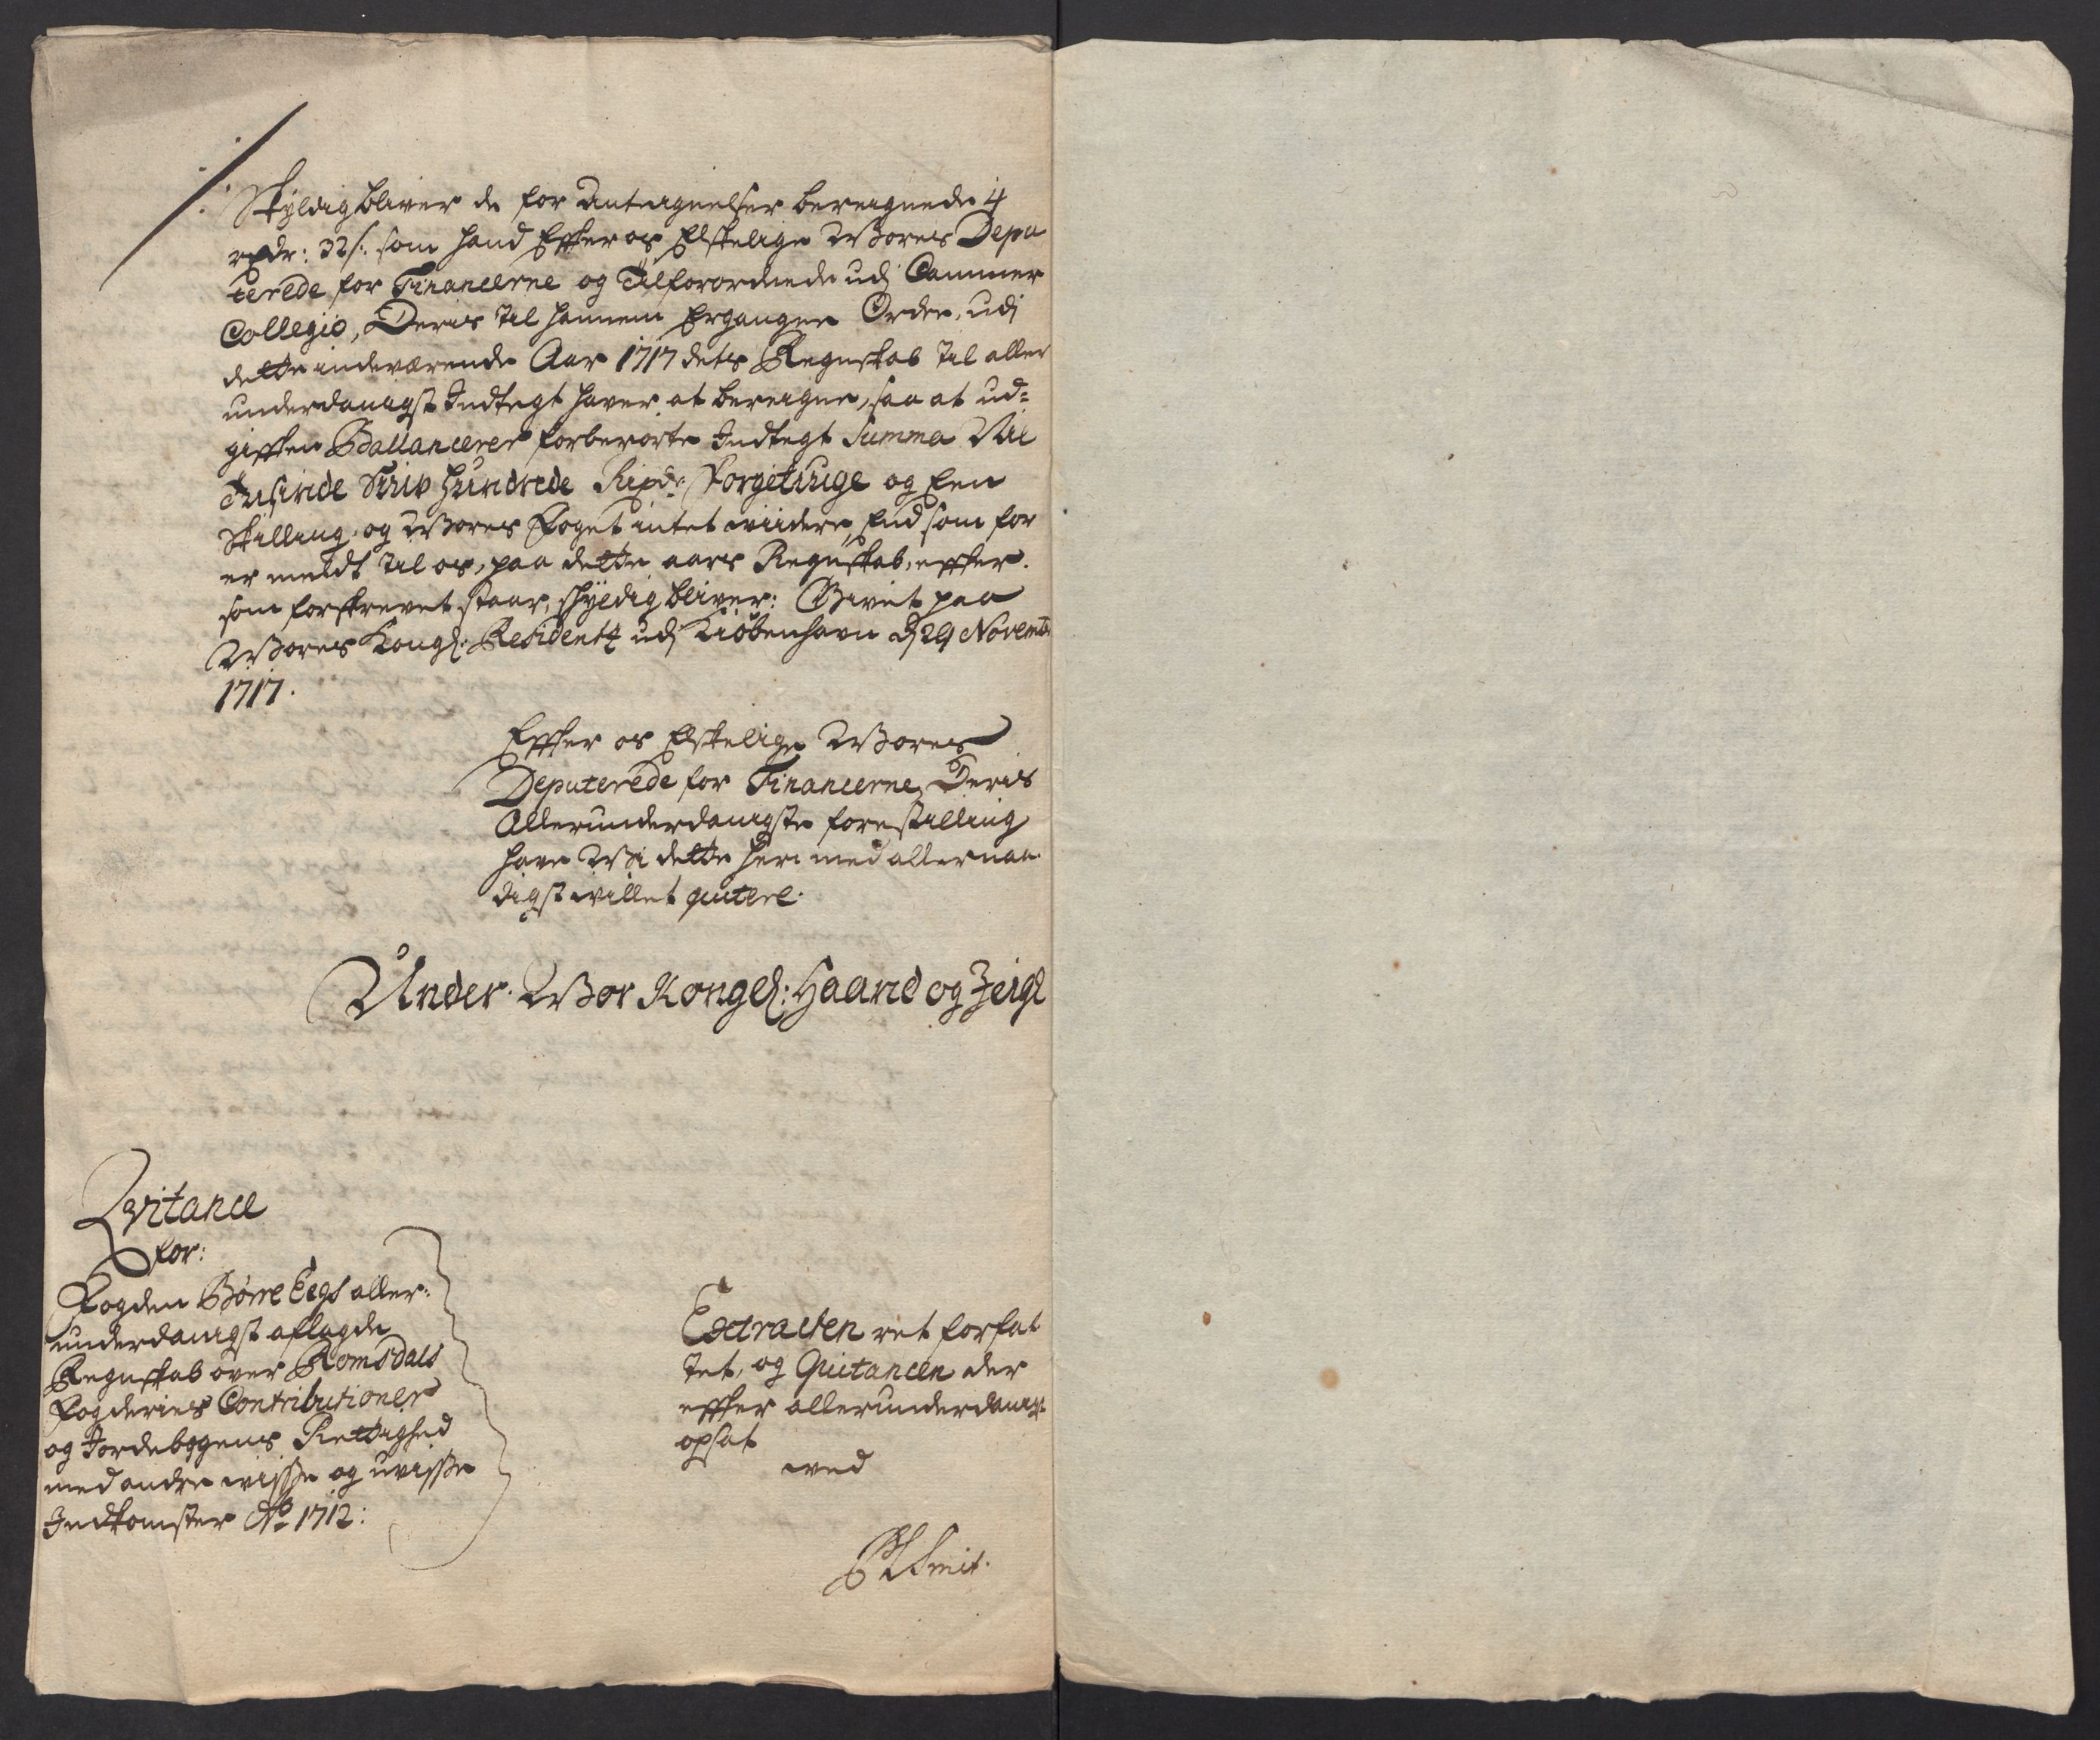 Skyldig bliver de for Antegnelser beregnede 4
rxdr: 32 s: som hand Effter os Elskelige Wores Depu
terede for Financerne og Tilforordnede udj Cammer
Collegio, Deris til hannem Ergangne Ordre, udj
dette indeværende Aar 1717 dets Regnskab til aller
underdanigst Indtegt haver at beregne, saa at ud=
gifften Ballancerer forberørte Indtegt Summa Nie
Tusinde Hundrede Rixdr Förgetiuge og Een
Skilling, og Wores Foget intet viidere, End som for
er meldt til os, paa dette aars Regnskab, effter.
som forskrevet staar, skyldig bliver: Givet paa
Wores Kongl: Residentz udj Kiøbenhavn d 29 Novemb:
1717.
Effter os Elskelige Wores
Deputerede for Financerne, Deris
Allerunderdanigste forestilling
have Wi dette her med allernaa
digst villet qvitere.
Under Wor Kongel: Haand og Zeigl
Qvitance
for:
Fogden Börre Eegs aller:
underdanigst aflagde
Regnskab over Romsdals
Fogderies Contributioner
og Jordebogens Rettighed
med andre visse og uvisse
Indkomster Ao 1712:
Extracten ret forfat
tet, og Quitancen der
effter allerunderdanigst
opsat
ved
Smit.